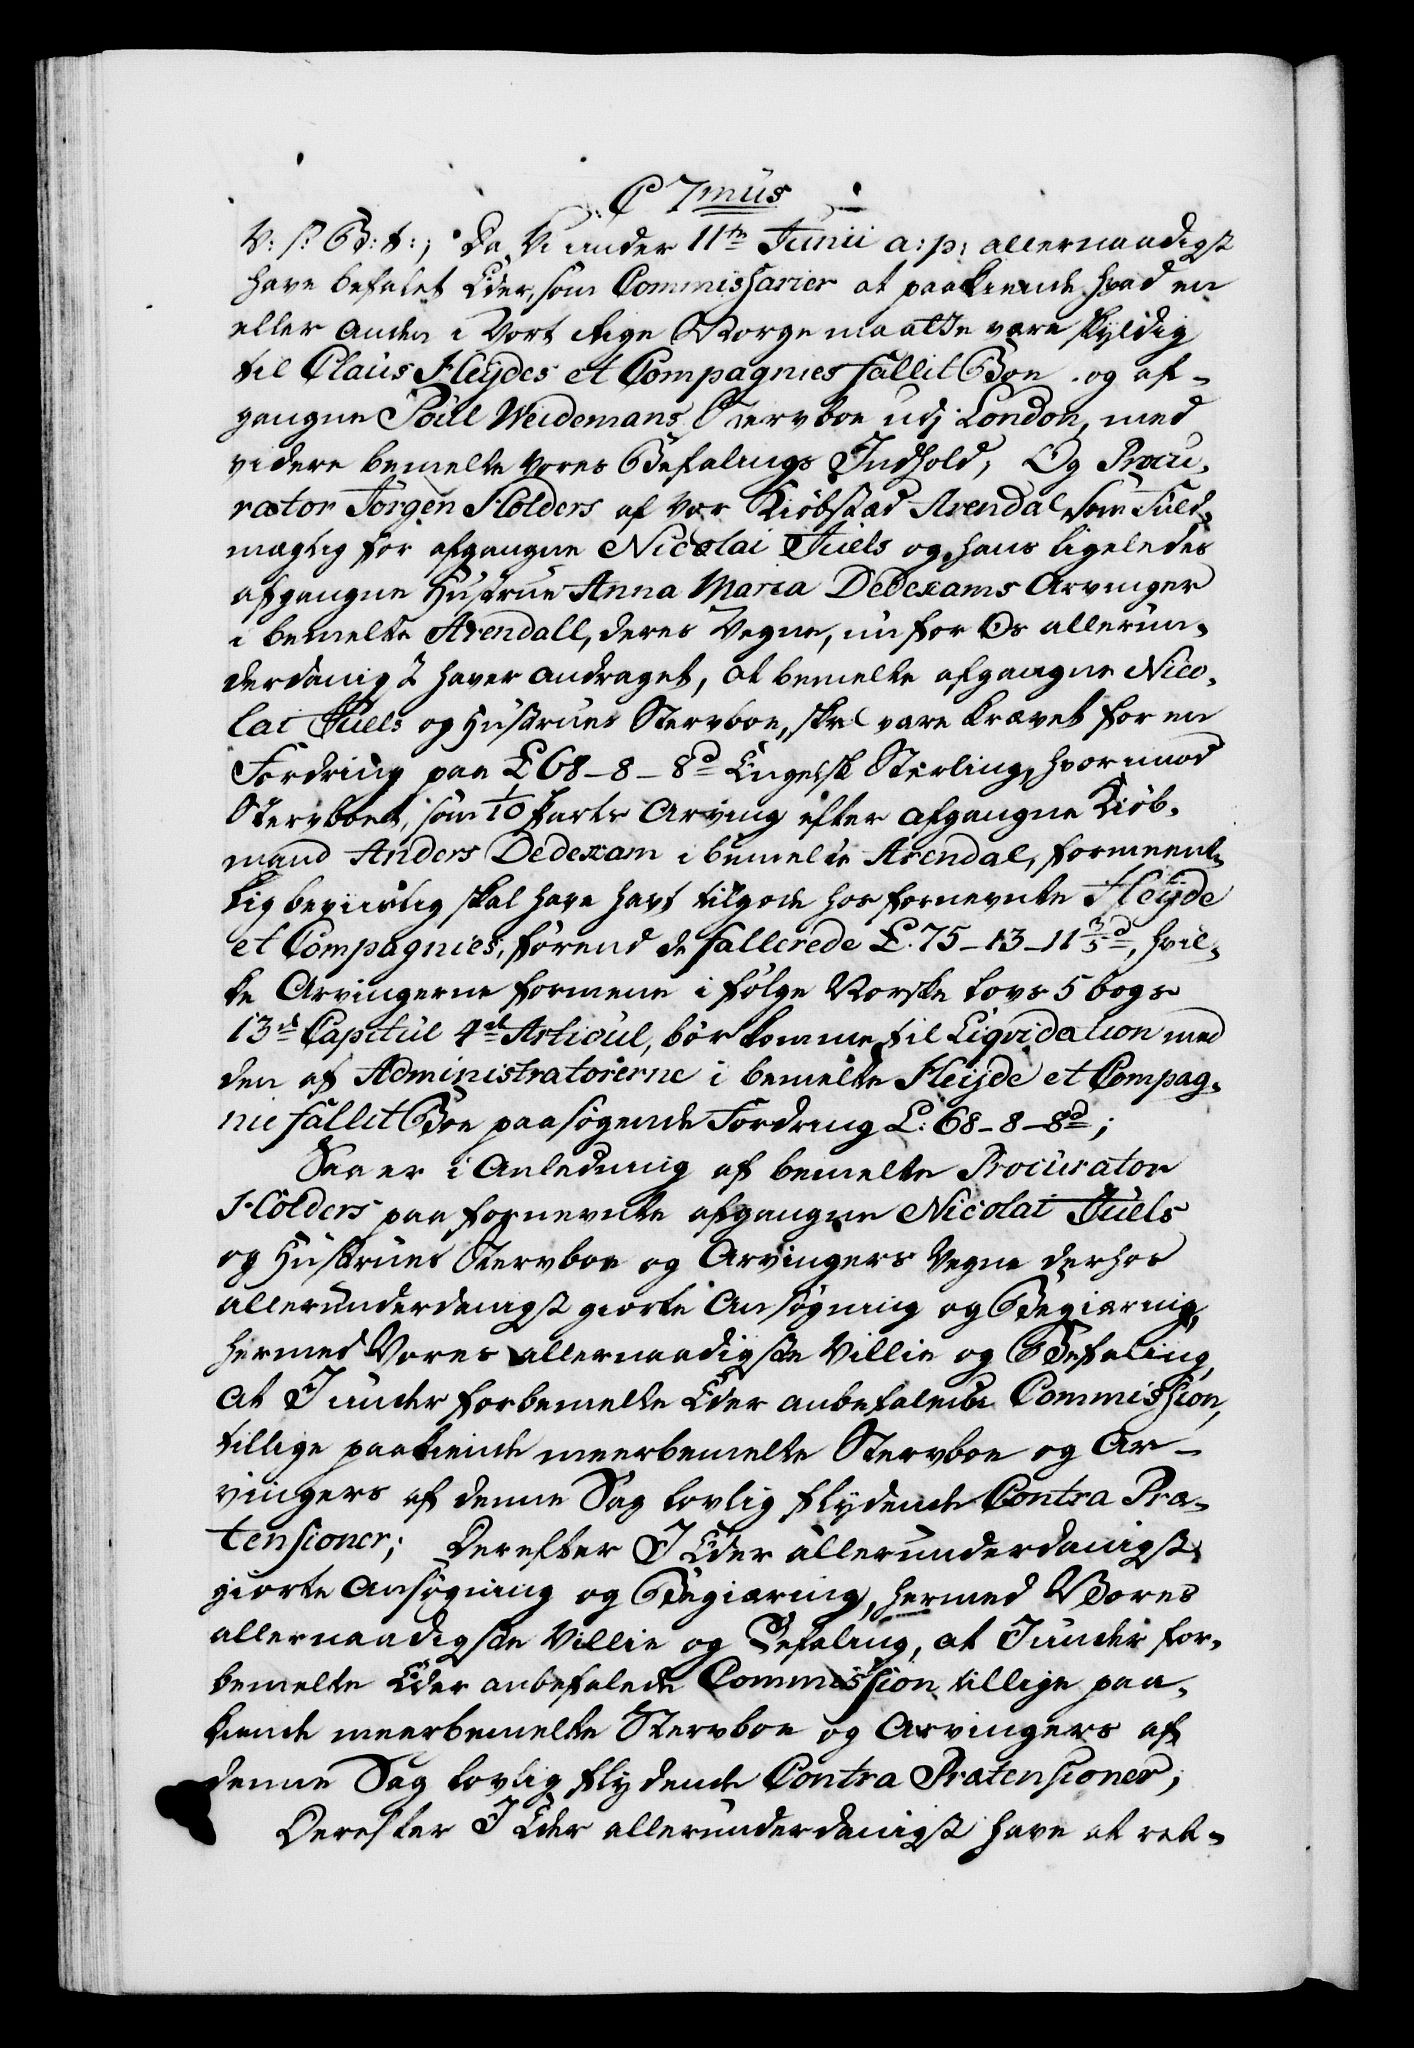 C 7mus
V: s: G: t:, Da Vi under 11te Junii a: p: allernaadigst
have befalet Eder, som Commissarier at paakiende hvad en
eller anden i Vort Rige Norge maatte være skyldig
til Claus Heydes et Compagnies fallit Boe og af-
gangne Poul Weidemans Stervboe udj London, med
videre bemelte vores Befalings Indhold, Og Procu-
rator Jørgen Holders af vor Kiøbstad Arendal som Fuld-
mægtig for afgangne Nicolai Juels og hans ligeledes
afgangne Hustrue Anna Maria Dedexams Arvinger
i bemelte Arendall, deres Vegne, nu for Os allerun-
derdanigst haver andraget, at bemelte afgangne Nico-
lai Juels og Hustrues Stervboe, skal være krævet for en
Fordring paa £ 68-8-8d Engelsk Sterling, hvormod
Stervboet, som 1/10 Parts Arving efter afgangne Kiøb-
mand Anders Dedexam i bemelte Arendal, formeent-
lig beviislig skal have havt tilgode hos fornevnte Heyde
et Compagnies, førend de fallerede £. 75-13-11 3/5d, hvil-
ke Arvingerne formene i følge Norske Lovs 5 bogs
13de Capitul 4de Articul, bør komme til Liqvidation med
den af Administratorerne i bemelte Heyde et Compag-
nie fallit Boe paasøgende Fordring £: 68-8-8d;
Saa er i Anledning af bemelte Procurator
Holders paa fornevnte afgangne Nicolai Juels
og Hustrues Stervboe og Arvingers Vegne derhos
allerunderdanigst giorte Ansøgning og Begiæring,
hermed Vores allernaadigste Villie og Befaling,
at I under forbemelte Eder anbefalede Commission,
tillige paakiende meerbemelte Stervboe og Ar-
vingers af denne Sag lovlig flydende Contra Præ-
tensioner; Derefter I Eder allerunderdanigst
giorte Ansøgning og Begiæring, hermed Vores
allernaadigste Villie og Befaling, at I under for-
bemelte Eder anbefalede Commission tillige paa-
kiende meerbemelte Stervboe og Arvingers af
denne Sag lovlig flydende Contra Prætensioner;
Derefter I Eder allerunderdanigst have at ret-